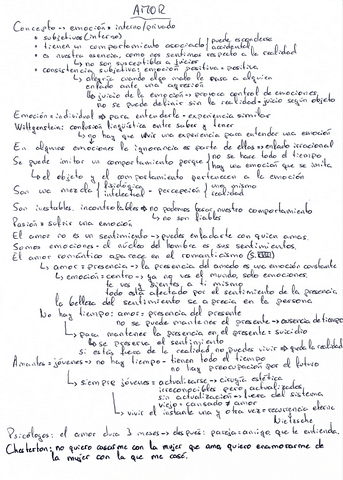 AMOR
Concepto → emoción → interno/privado
• subjetivas (interno)
• tienen un comportamiento asociado puede esconderse
accidental
• es nuestra esencia, como nos sentimos respecto a la realidad
↳ no son susceptibles a juicios
• consistencia subjetiva: emoción positiva = positiva
↳ alegría cuando algo malo le pasa a alguien
enfado ante una agresión
↳ juicio de la emoción → provoca control de emociones,
no se puede definir sin la realidad - juicio según objeto
Emoción = individual → para entenderlo - experiencia similar
Wittgenstein: confusión lingüística entre saber y tener
↳ no hay que vivir una experiencia para entender una emoción
En algunas emociones la ignorancia es parte de ellas → enfado irracional
Se puede imitar un comportamiento porque no se hace todo el tiempo
hay una emoción que se imita
↳ el objeto y el comportamiento pertenecen a la emoción
Son una mezcla fisiológica
intelectual - percepción uno mismo
realidad
Son inestables, incontrolables → no podemos basar nuestro comportamiento
↳ no son fiables
Pasión = sufrir una emoción
El amor no es un sentimiento → puedes enfadarte con quien amas.
Somos emociones - el núcleo del hombre es sus sentimientos.
El amor romántico aparece en el romanticismo (S.XVIII)
↳ amor = presencia → la presencia del amado es una emoción constante
↳ emoción = centro → ya no ves el mundo, solo emociones,
te ves y sientes, a ti mismo
todo está afectado por el sentimiento de la presencia
la belleza del sentimiento se aprecia en la persona
No hay tiempo: amor = presencia del presente
no se puede mantener el presente → ausencia de tiempo
↳ para mantener la presencia en el presente = suicidio
↳ se preserva el sentimiento
si estás fuera de la realidad no puedes vivir → queda la realidad
Amantes = jóvenes → no hay tiempo - tienen todo el tiempo
no hay preocupación por el futuro
↳ siempre jóvenes = actualizarse → cirugía estética
irreconocibles pero actualizados,
sin actualización = fuera del sistema
viejo = cansado ≠ amor
↳ vivir el instante una y otra vez = recurrencia eterna
Nietzsche
Psicólogos: el amor dura 3 meses → después: pareja = amigo, que te entienda.
Chesterton: no quiero casarme con la mujer que amo, quiero enamorarme de
la mujer con la que me casé.